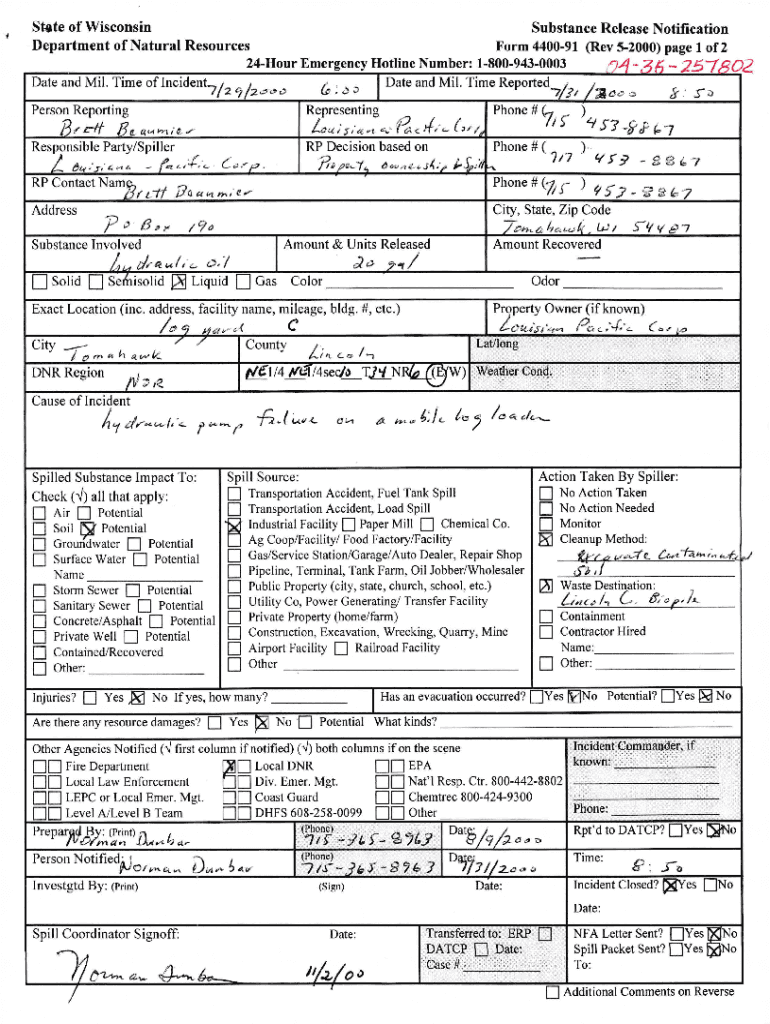 State of Wisconsin
Department of Natural Resources
Substance Release Notification
Form 4400-91 (Rev 5-2000) page 1 of 2
24-Hour Emergency Hotline Number: 1-800-943-0003
04-35-257802
Date and Mil. Time of Incident 7/29/2000 6:00 Date and Mil. Time Reported 7/31/2000 8:50
Person Reporting Representing Phone # (715) 453-8867
Brett Beaumier Louisiana-Pacific Corp
Responsible Party/Spiller RP Decision based on Phone # (717) 453-8867
Louisiana-Pacific Corp. Property ownership & Spiller
RP Contact Name Brett Beaumier Phone # (715) 453-8867
Address City, State, Zip Code
PO Box 190 Tomahawk, WI 54487
Substance Involved Amount & Units Released Amount Recovered
hydraulic oil 20 gal —
Solid Semisolid Liquid Gas Color Odor
Exact Location (inc. address, facility name, mileage, bldg. #, etc.) Property Owner (if known)
log yard C Louisian Pacific Corp
City Tomahawk County Lincoln Lat/long
DNR Region NOR NE1/4 NE1/4sec10 T34 NR6 (E/W) Weather Cond.
Cause of Incident
hydraulic pump failure on a mobile log loader
Spilled Substance Impact To:
Check (√) all that apply:
Air Potential
Soil Potential
Groundwater Potential
Surface Water Potential
Name
Storm Sewer Potential
Sanitary Sewer Potential
Concrete/Asphalt Potential
Private Well Potential
Contained/Recovered
Other:
Spill Source:
Transportation Accident, Fuel Tank Spill
Transportation Accident, Load Spill
Industrial Facility Paper Mill Chemical Co.
Ag Coop/Facility/ Food Factory/Facility
Gas/Service Station/Garage/Auto Dealer, Repair Shop
Pipeline, Terminal, Tank Farm, Oil Jobber/Wholesaler
Public Property (city, state, church, school, etc.)
Utility Co, Power Generating/ Transfer Facility
Private Property (home/farm)
Construction, Excavation, Wrecking, Quarry, Mine
Airport Facility Railroad Facility
Other
Action Taken By Spiller:
No Action Taken
No Action Needed
Monitor
Cleanup Method:
Excavate Contaminated
Soil
Waste Destination:
Lincoln Co. Biopile
Containment
Contractor Hired
Name:
Other:
Injuries? Yes No If yes, how many? Has an evacuation occurred? Yes No Potential? Yes No
Are there any resource damages? Yes No Potential What kinds?
Other Agencies Notified (√ first column if notified) (√) both columns if on the scene
Fire Department Local DNR EPA
Local Law Enforcement Div. Emer. Mgt. Nat'l Resp. Ctr. 800-442-8802
LEPC or Local Emer. Mgt. Coast Guard Chemtrec 800-424-9300
Level A/Level B Team DHFS 608-258-0099 Other
Incident Commander, if
known:
Phone:
Prepared By: (Print) Norman Dunbar (Phone) 715-365-8963 Date: 8/9/2000 Rpt'd to DATCP? Yes No
Person Notified: Norman Dunbar (Phone) 715-365-8963 Date: 7/31/2000 Time: 8:50
Investgtd By: (Print) (Sign) Date: Incident Closed? Yes No
Date:
Spill Coordinator Signoff: Date: Transferred to: ERP NFA Letter Sent? Yes No
DATCP Date: Spill Packet Sent? Yes No
Norman Dunbar 11/2/00 Case # To:
Additional Comments on Reverse